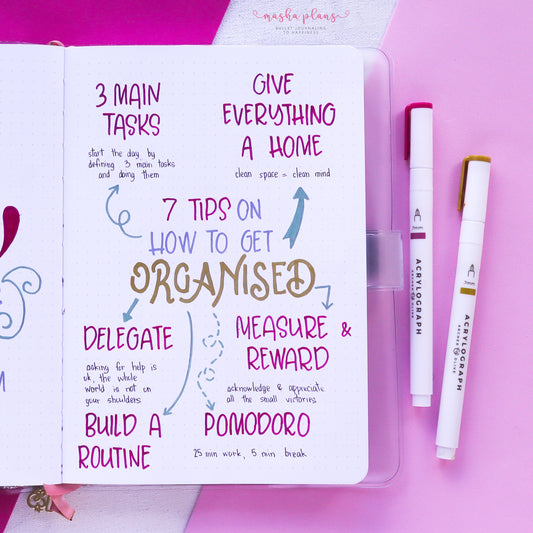 masha plans
BULLET JOURNALING
TO HAPPINESS
3 MAIN
TASKS
start the day by
defining 3 main tasks
and doing them
GIVE
EVERYTHING
A HOME
clean space = clean mind
7 TIPS ON
HOW TO GET
ORGANISED
DELEGATE
asking for help is
ok, the whole
world is not on
your shoulders
MEASURE &
REWARD
acknowledge & appreciate
all the small victories
BUILD A
ROUTINE
POMODORO
25 min work, 5 min break
ACRYLOGRAPH
ARCHER & OLIVE
ACRYLOGRAPH
ARCHER & OLIVE